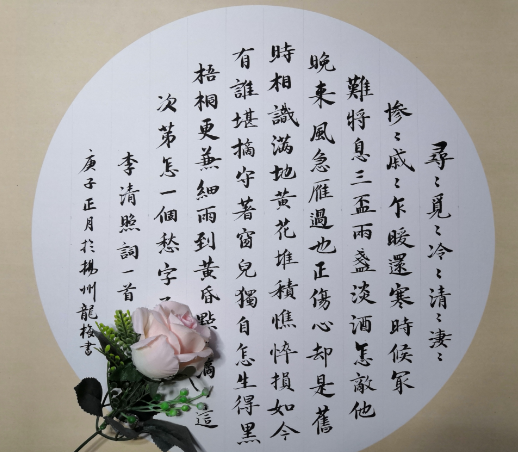 尋〻覓〻冷〻清〻淒〻
惨〻戚〻乍暖還寒時候冣
難將息三盃兩盞淡酒怎敵他
晚来風急雁過也正傷心却是舊
時相識满地黄花堆積憔悴損如今
有誰堪摘守著窗兒獨自怎生得黑
梧桐更兼細雨到黄昏點滴〻這
次第怎一個愁字
李清照詞一首
庚子正月於楊州龍梅書